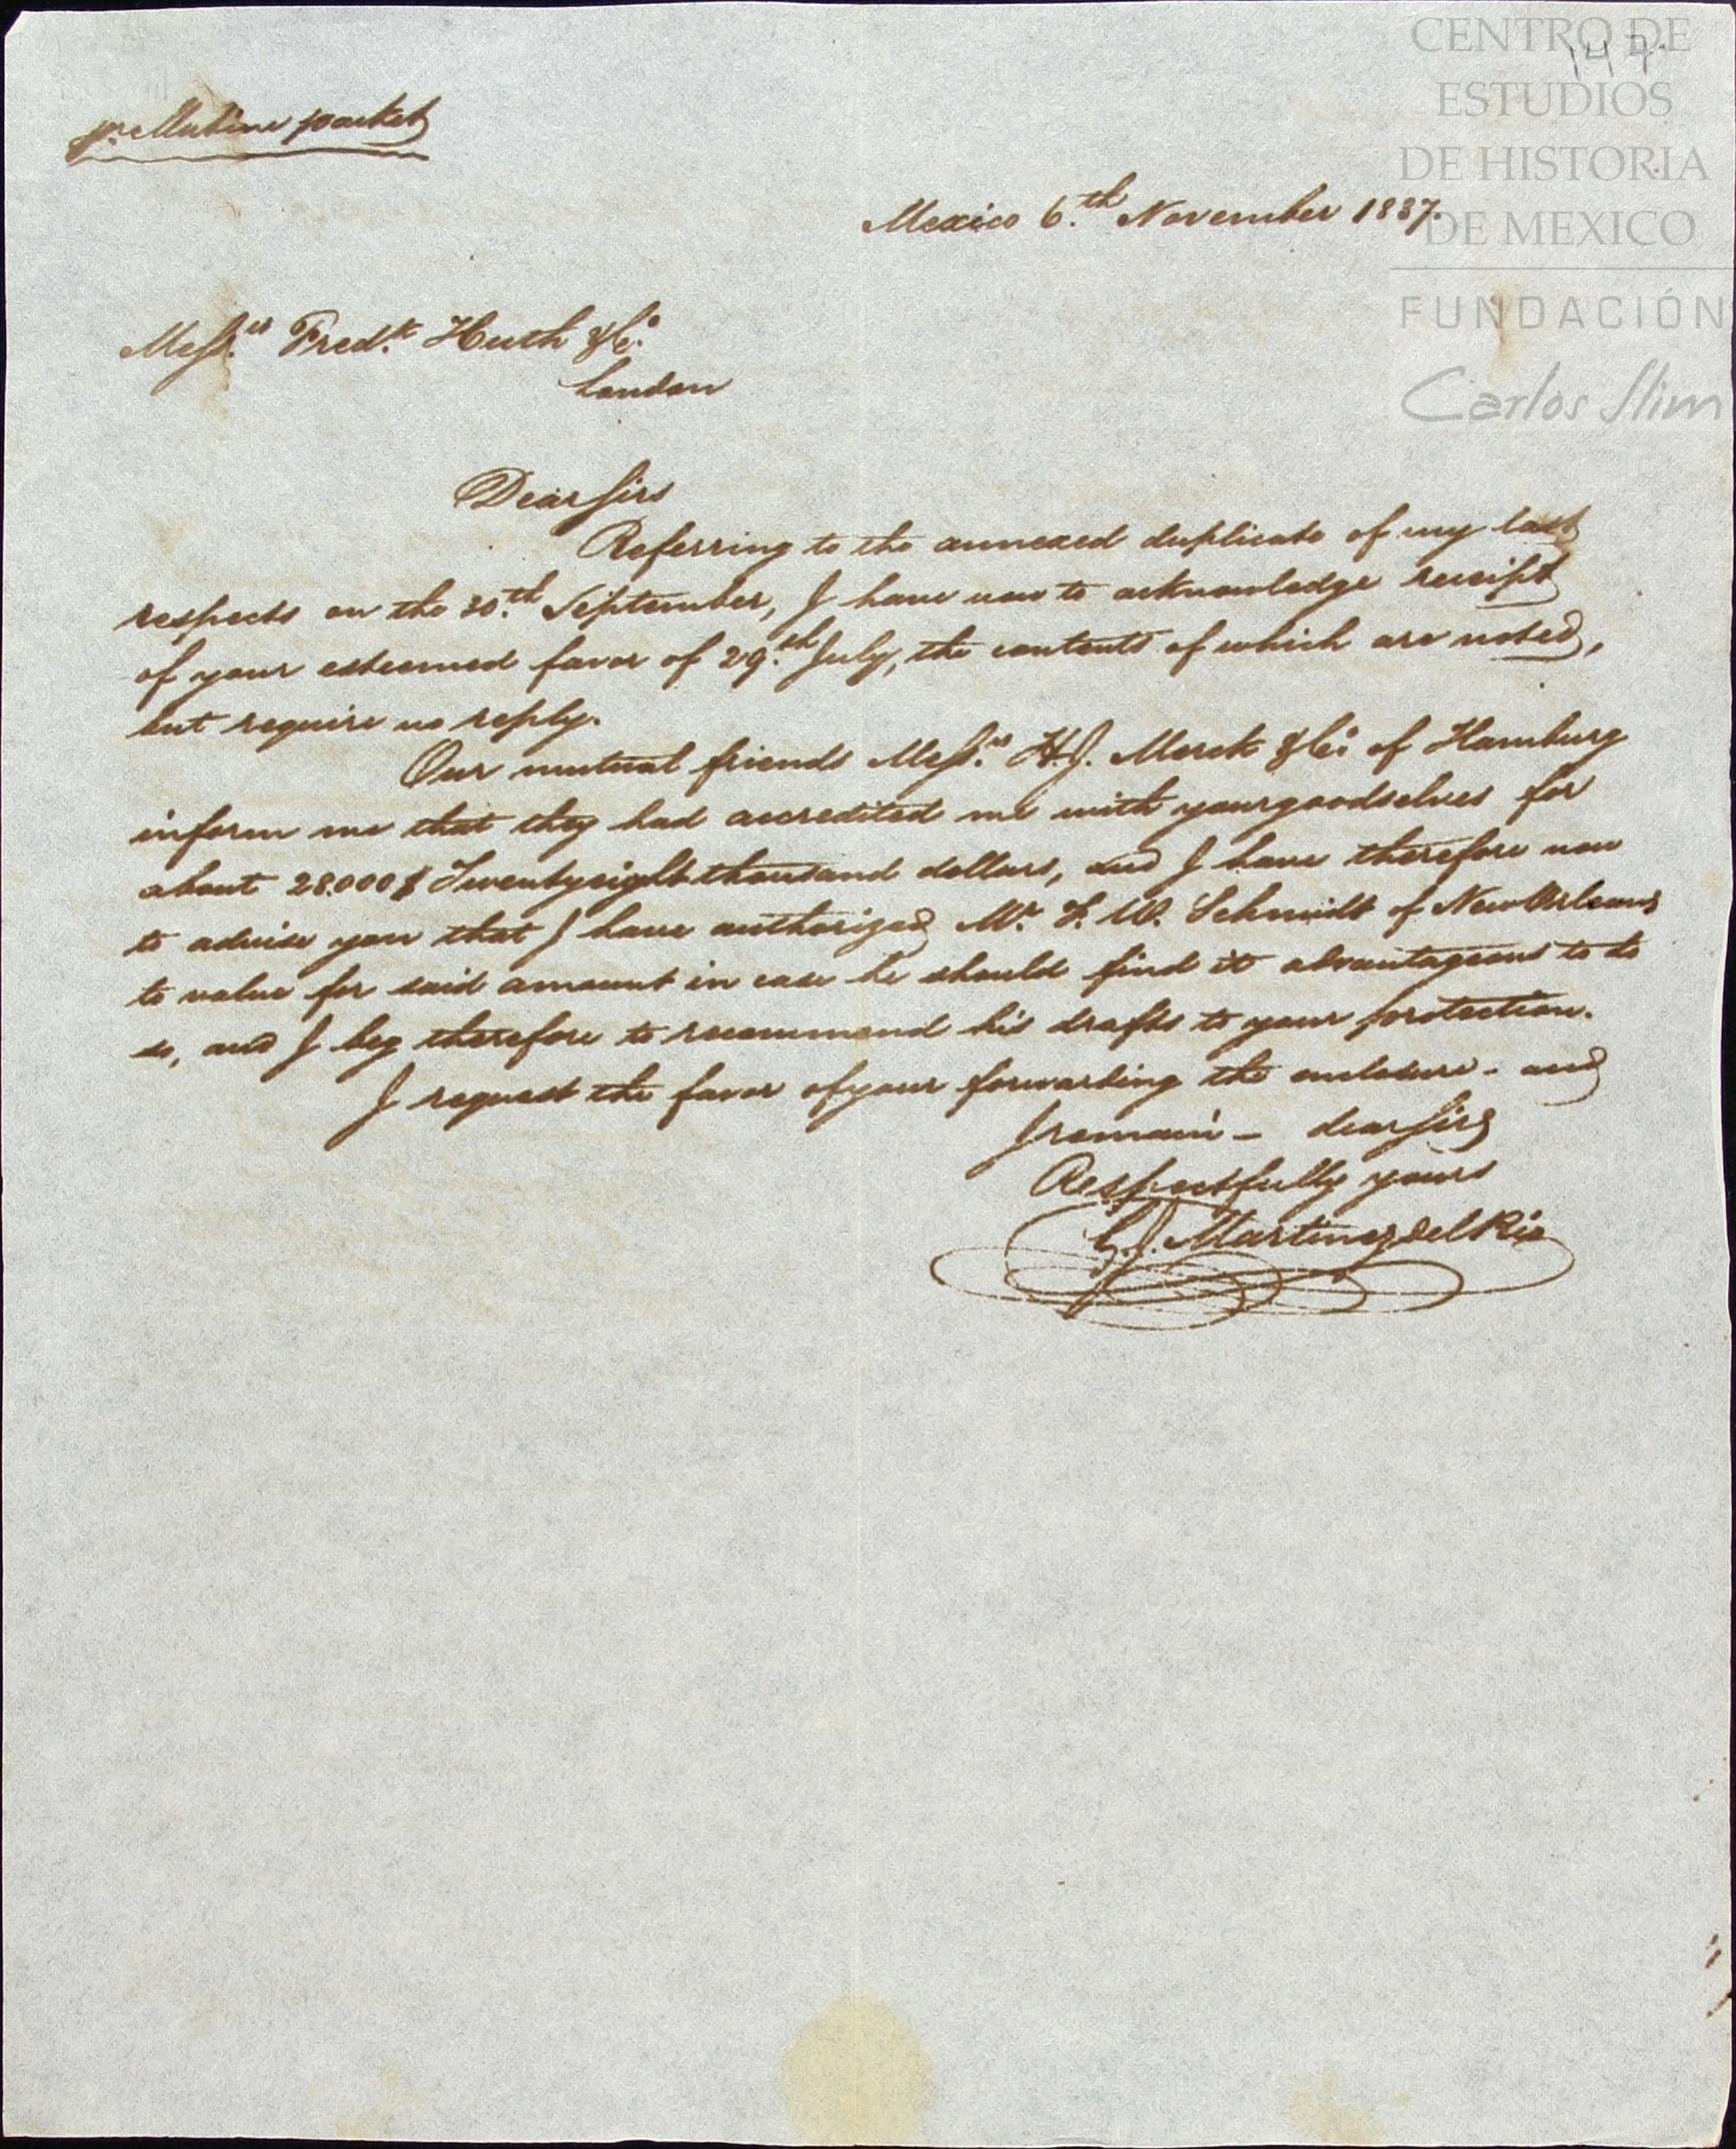 CENTRO DE
ESTUDIOS
DE HISTORIA
DE MEXICO
FUNDACIÓN
Carlos Slim
147
pr. Mutine packet
Mexico 6.th November 1837.
Mess.rs Fred.k Huth & Co.
London
Dear Sirs
Referring to the annexed duplicate of my last
respects on the 30.th September, I have now to acknowledge receipt
of your esteemed favor of 29.th July, the contents of which are noted,
but require no reply.
Our mutual friends Mess.rs H.J. Merck & Co. of Hamburg
inform me that they had accredited me with yourgoodselves for
about 28.000$ Twentyeight thousand dollars, and I have therefore now
to advise you that I have authorized Mr. F. W. Schmidt of New Orleans
to value for said amount in case he should find it advantageous to do
so, and I beg therefore to recommend his drafts to your protection.
I request the favor of your forwarding the enclosure - and
I remain - dear Sirs
Respectfully yours
G.J. Martinez del Rio